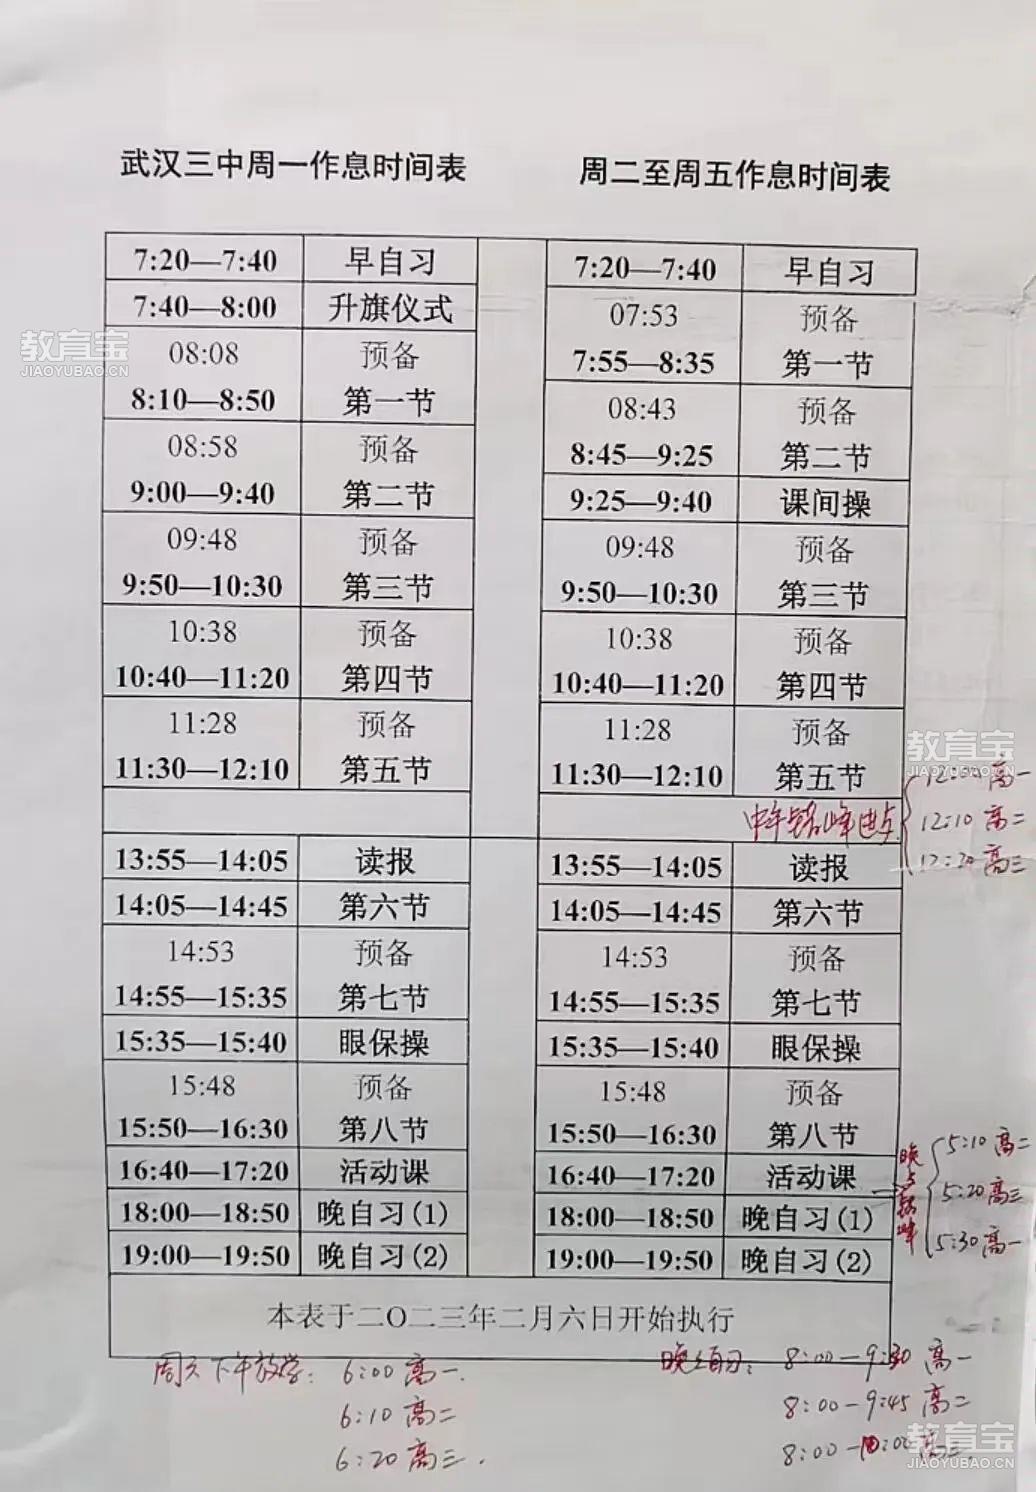 武汉三中周一作息时间表
周二至周五作息时间表
7:20—7:40 早自习
7:40—8:00 升旗仪式
08:08 预备
8:10—8:50 第一节
08:58 预备
9:00—9:40 第二节
09:48 预备
9:50—10:30 第三节
10:38 预备
10:40—11:20 第四节
11:28 预备
11:30—12:10 第五节
13:55—14:05 读报
14:05—14:45 第六节
14:53 预备
14:55—15:35 第七节
15:35—15:40 眼保操
15:48 预备
15:50—16:30 第八节
16:40—17:20 活动课
18:00—18:50 晚自习(1)
19:00—19:50 晚自习(2)
7:20—7:40 早自习
07:53 预备
7:55—8:35 第一节
08:43 预备
8:45—9:25 第二节
9:25—9:40 课间操
09:48 预备
9:50—10:30 第三节
10:38 预备
10:40—11:20 第四节
11:28 预备
11:30—12:10 第五节
中午错峰
12:00 高一
12:10 高二
12:20 高三
13:55—14:05 读报
14:05—14:45 第六节
14:53 预备
14:55—15:35 第七节
15:35—15:40 眼保操
15:48 预备
15:50—16:30 第八节
16:40—17:20 活动课
18:00—18:50 晚自习(1)
19:00—19:50 晚自习(2)
晚 错峰
5:10 高二
5:20 高三
5:30 高一
本表于二O二三年二月六日开始执行
下午放学: 6:00 高一.
6:10 高二
6:20 高三.
晚自习: 8:00—9:30 高一
8:00—9:45 高二
8:00—10:00 高三.
教育宝
JIAOYUBAO.CN
教育宝
JIAOYUBAO.CN
教育宝
JIAOYUBAO.CN